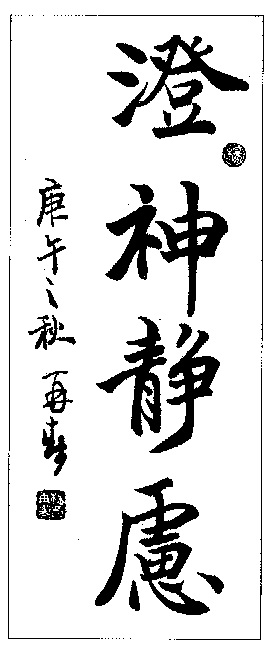 澄神静慮
庚午之秋 再春